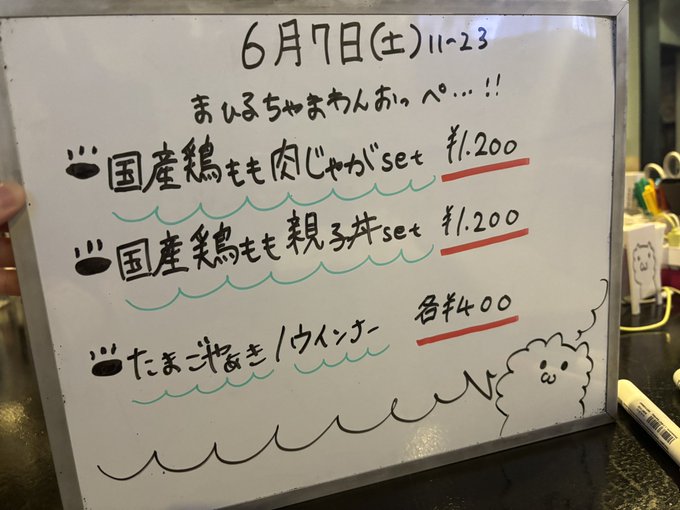 6月7日(土) 11~23
まひるちゃまわんおっぺ…!!
国産鶏もも肉じゃがset ¥1.200
国産鶏もも親子丼set ¥1.200
たまごやぁき/ウインナー 各¥400